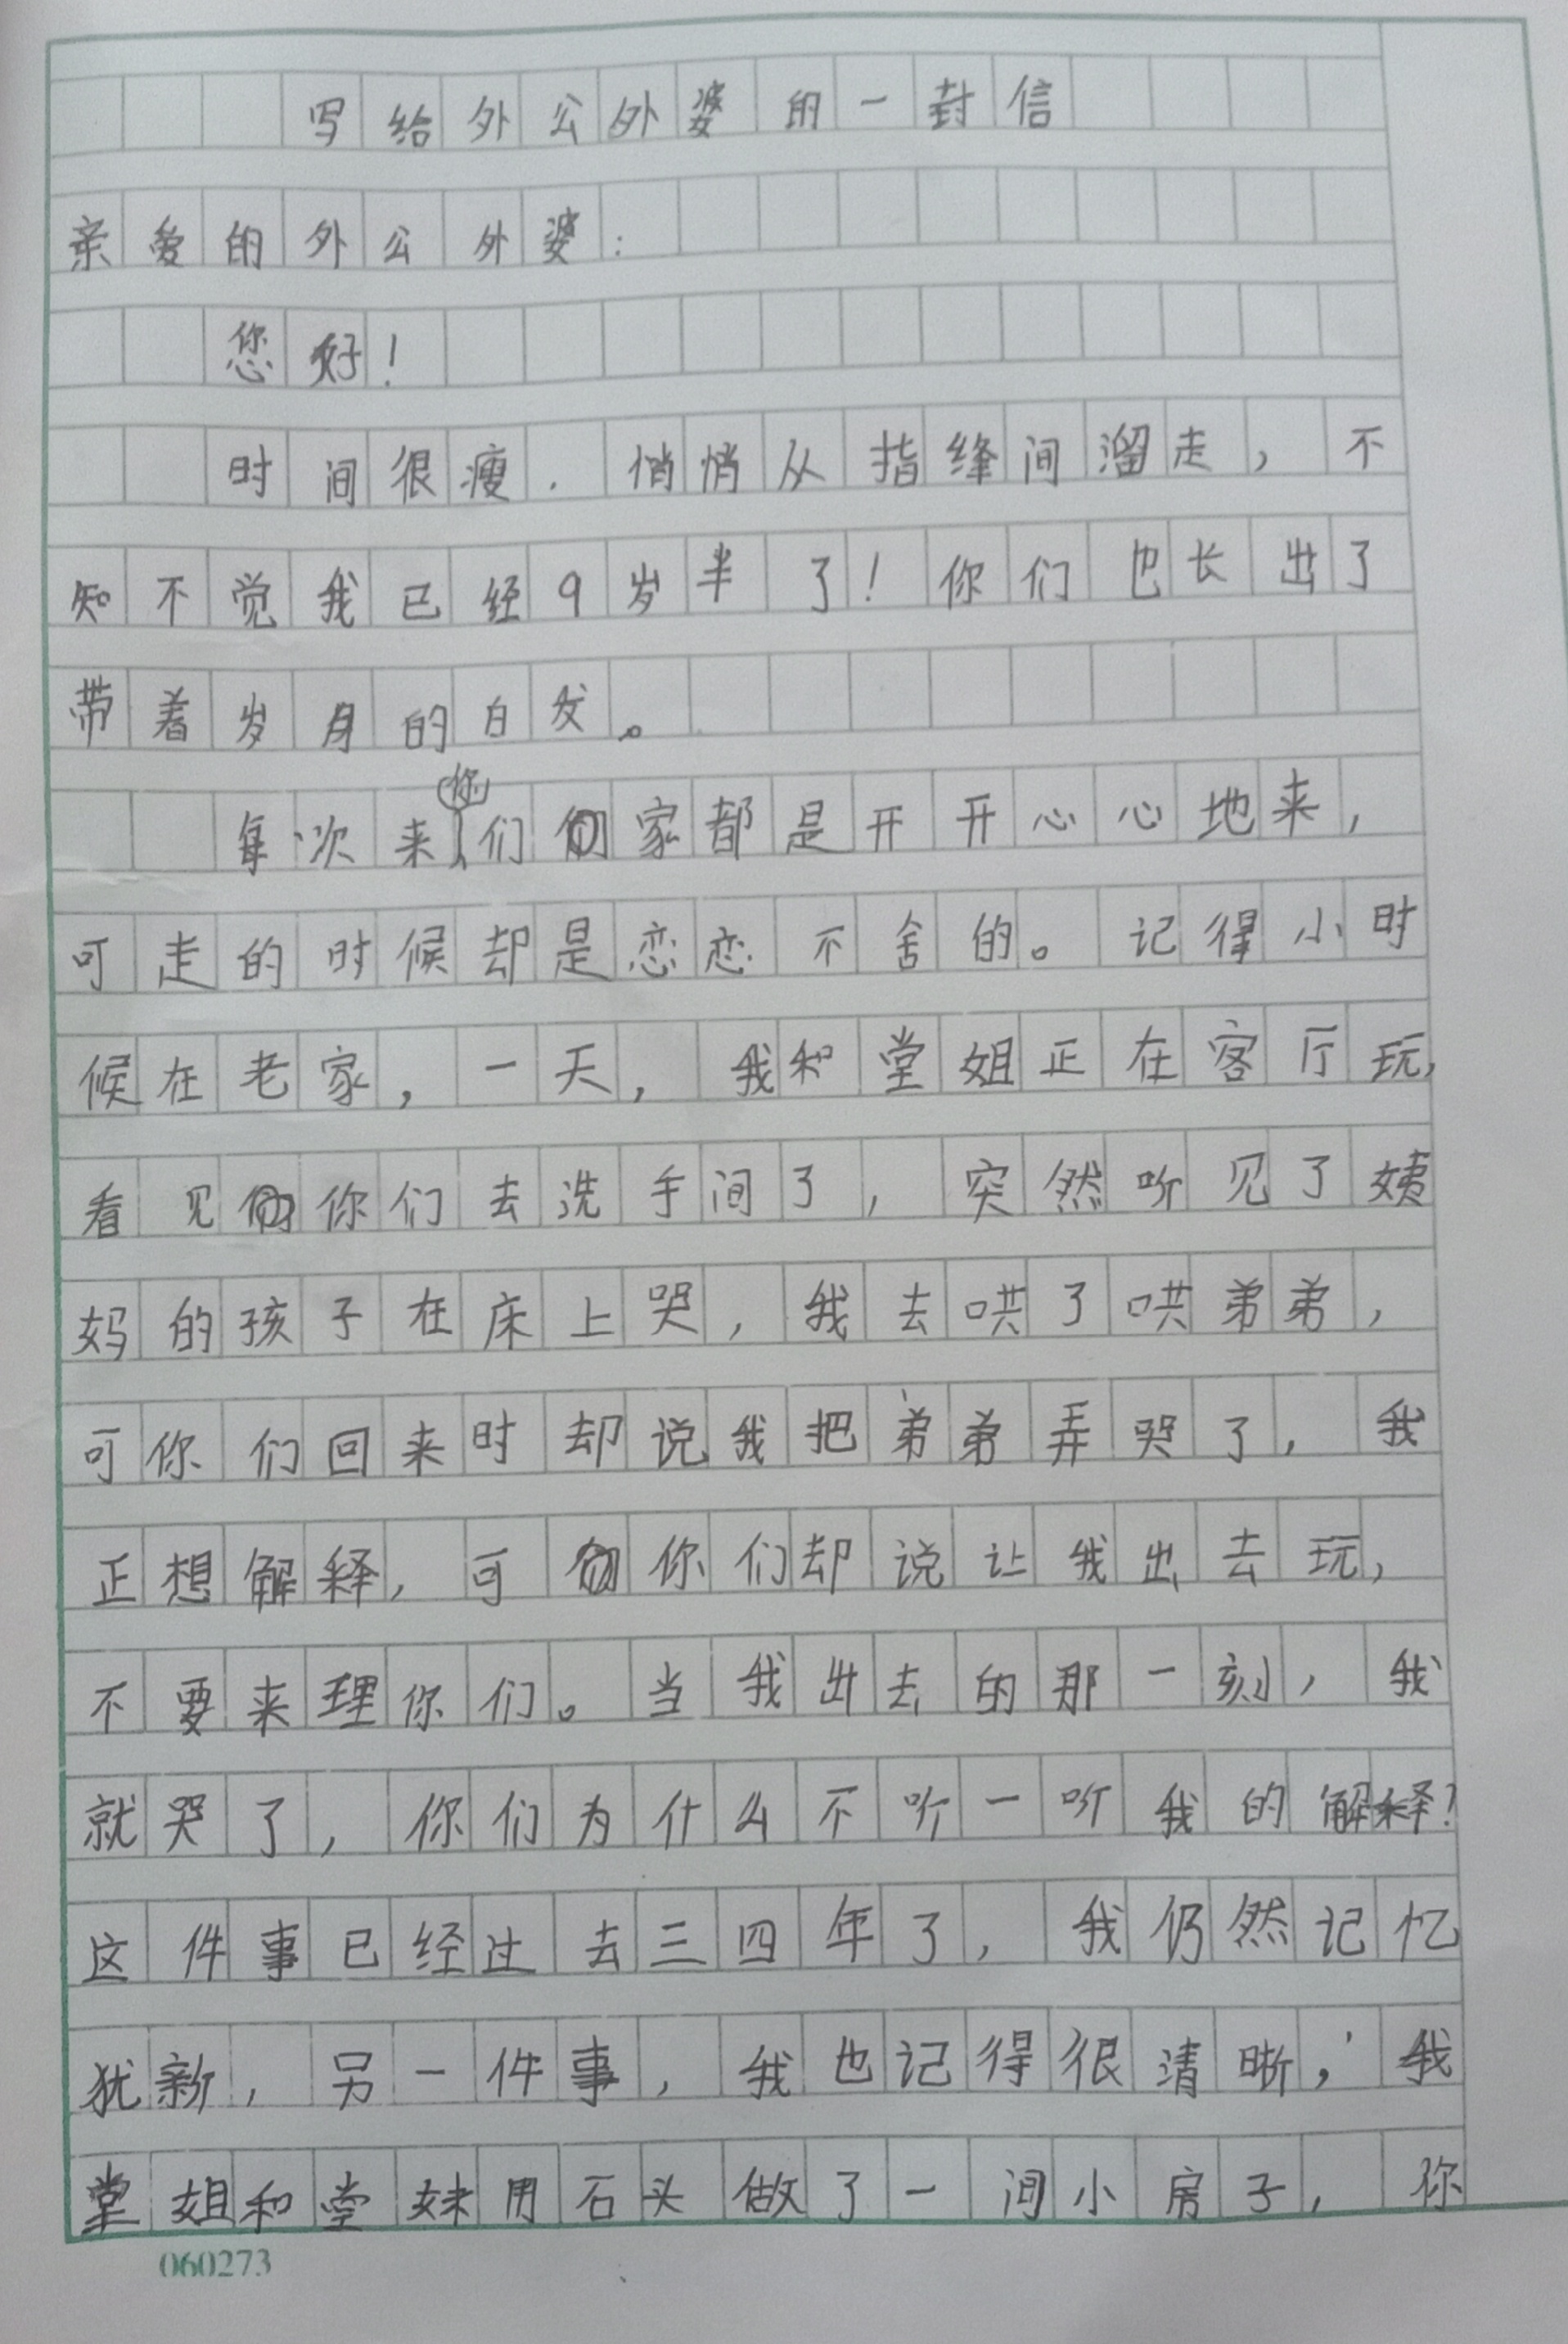 写给外公外婆的一封信
亲爱的外公外婆：
您好！
时间很瘦.悄悄从指缝间溜走，不
知不觉我已经9岁半了！你们也长出了
带着岁月的白发。
每次来您们家都是开开心心地来，
可走的时候却是恋恋不舍的。记得小时
候在老家，一天，我和堂姐正在客厅玩，
看见你们去洗手间了，突然听见了姨
妈的孩子在床上哭，我去哄了哄弟弟，
可你们回来时却说我把弟弟弄哭了，我
正想解释，可你们却说让我出去玩，
不要来理你们。当我出去的那一刻，我
就哭了，你们为什么不听一听我的解释？
这件事已经过去三四年了，我仍然记忆
犹新，另一件事，我也记得很清晰，我
堂姐和堂妹用石头做了一间小房子，你
060273